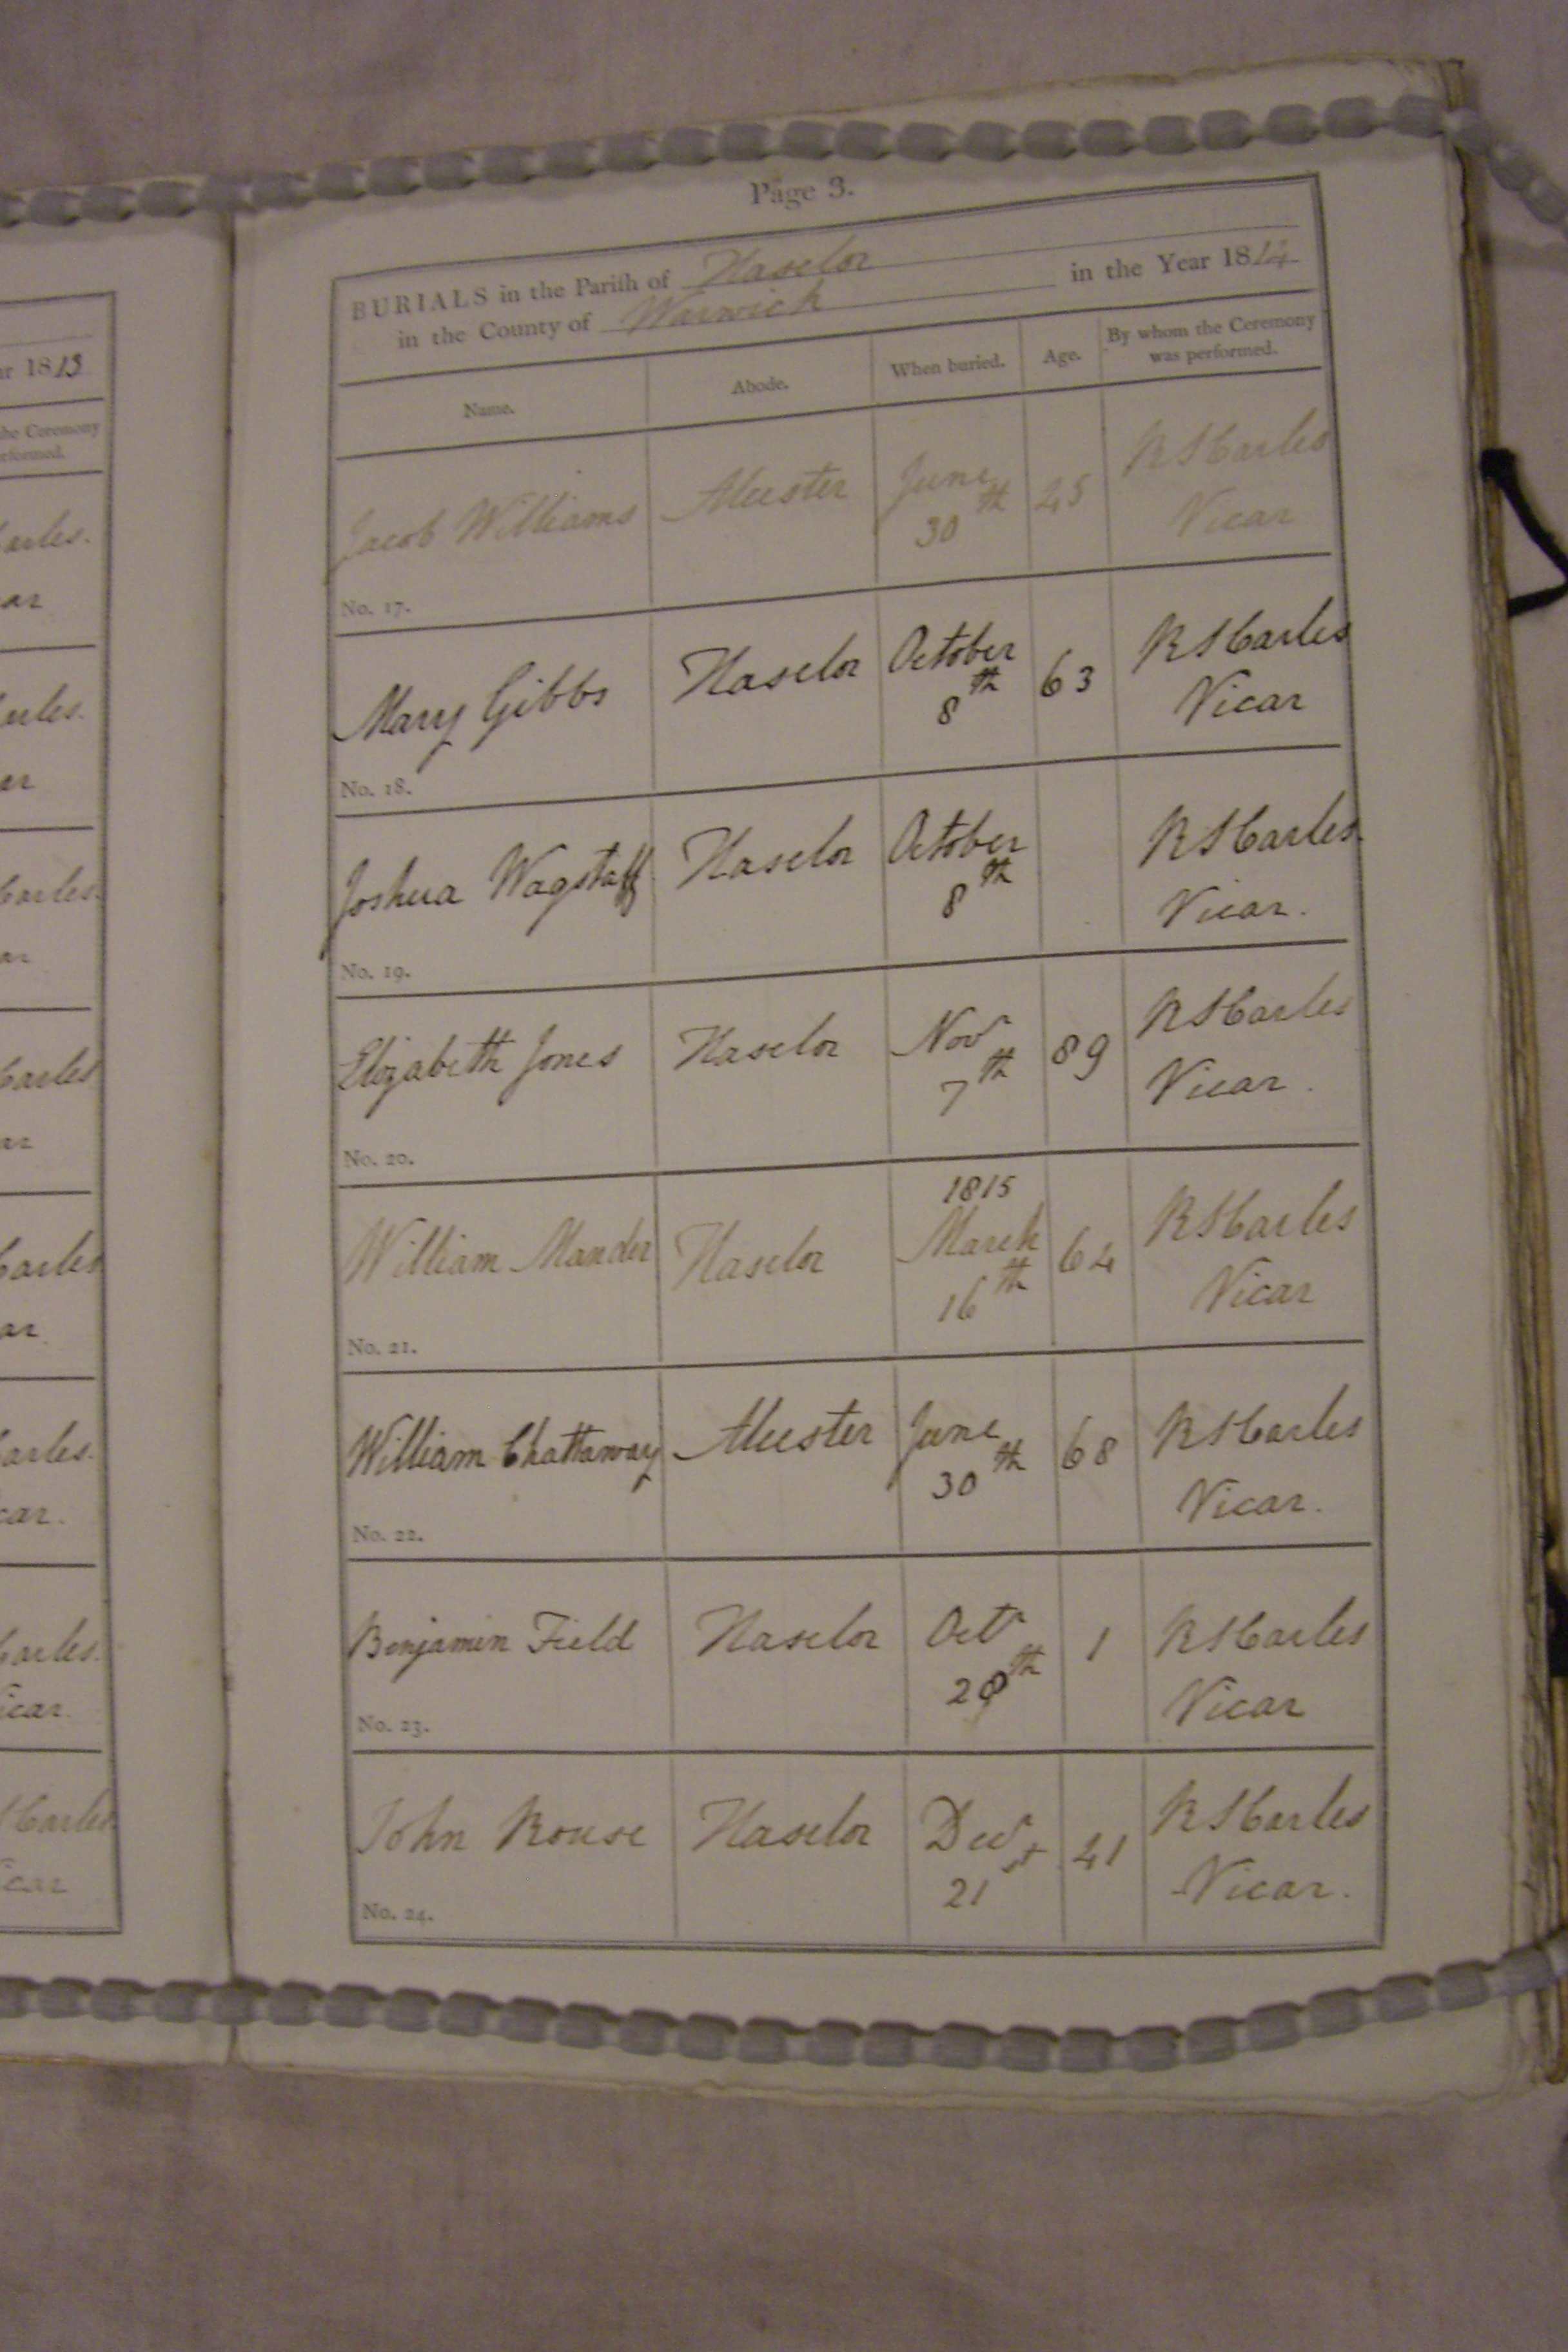 Page 3.
BURIALS in the Parish of Haselor
in the County of Warwick in the Year 1814
Name. Abode. When buried. Age. By whom the Ceremony was performed.
Jacob Williams Alcester June 30th 45 R S Carles Vicar
No. 17.
Mary Gibbs Haselor October 8th 63 R S Carles Vicar
No. 18.
Joshua Wagstaff Haselor October 8th R S Carles Vicar.
No. 19.
Elizabeth Jones Haselor Novr 7th 89 R S Carles Vicar.
No. 20.
William Mander Haselor 1815 March 16th 64 R S Carles Vicar
No. 21.
William Chattaway Alcester June 30th 68 R S Carles Vicar.
No. 22.
Benjamin Field Haselor Octr 28th 1 R S Carles Vicar
No. 23.
John Rouse Haselor Decr 21st 41 R S Carles Vicar.
No. 24.